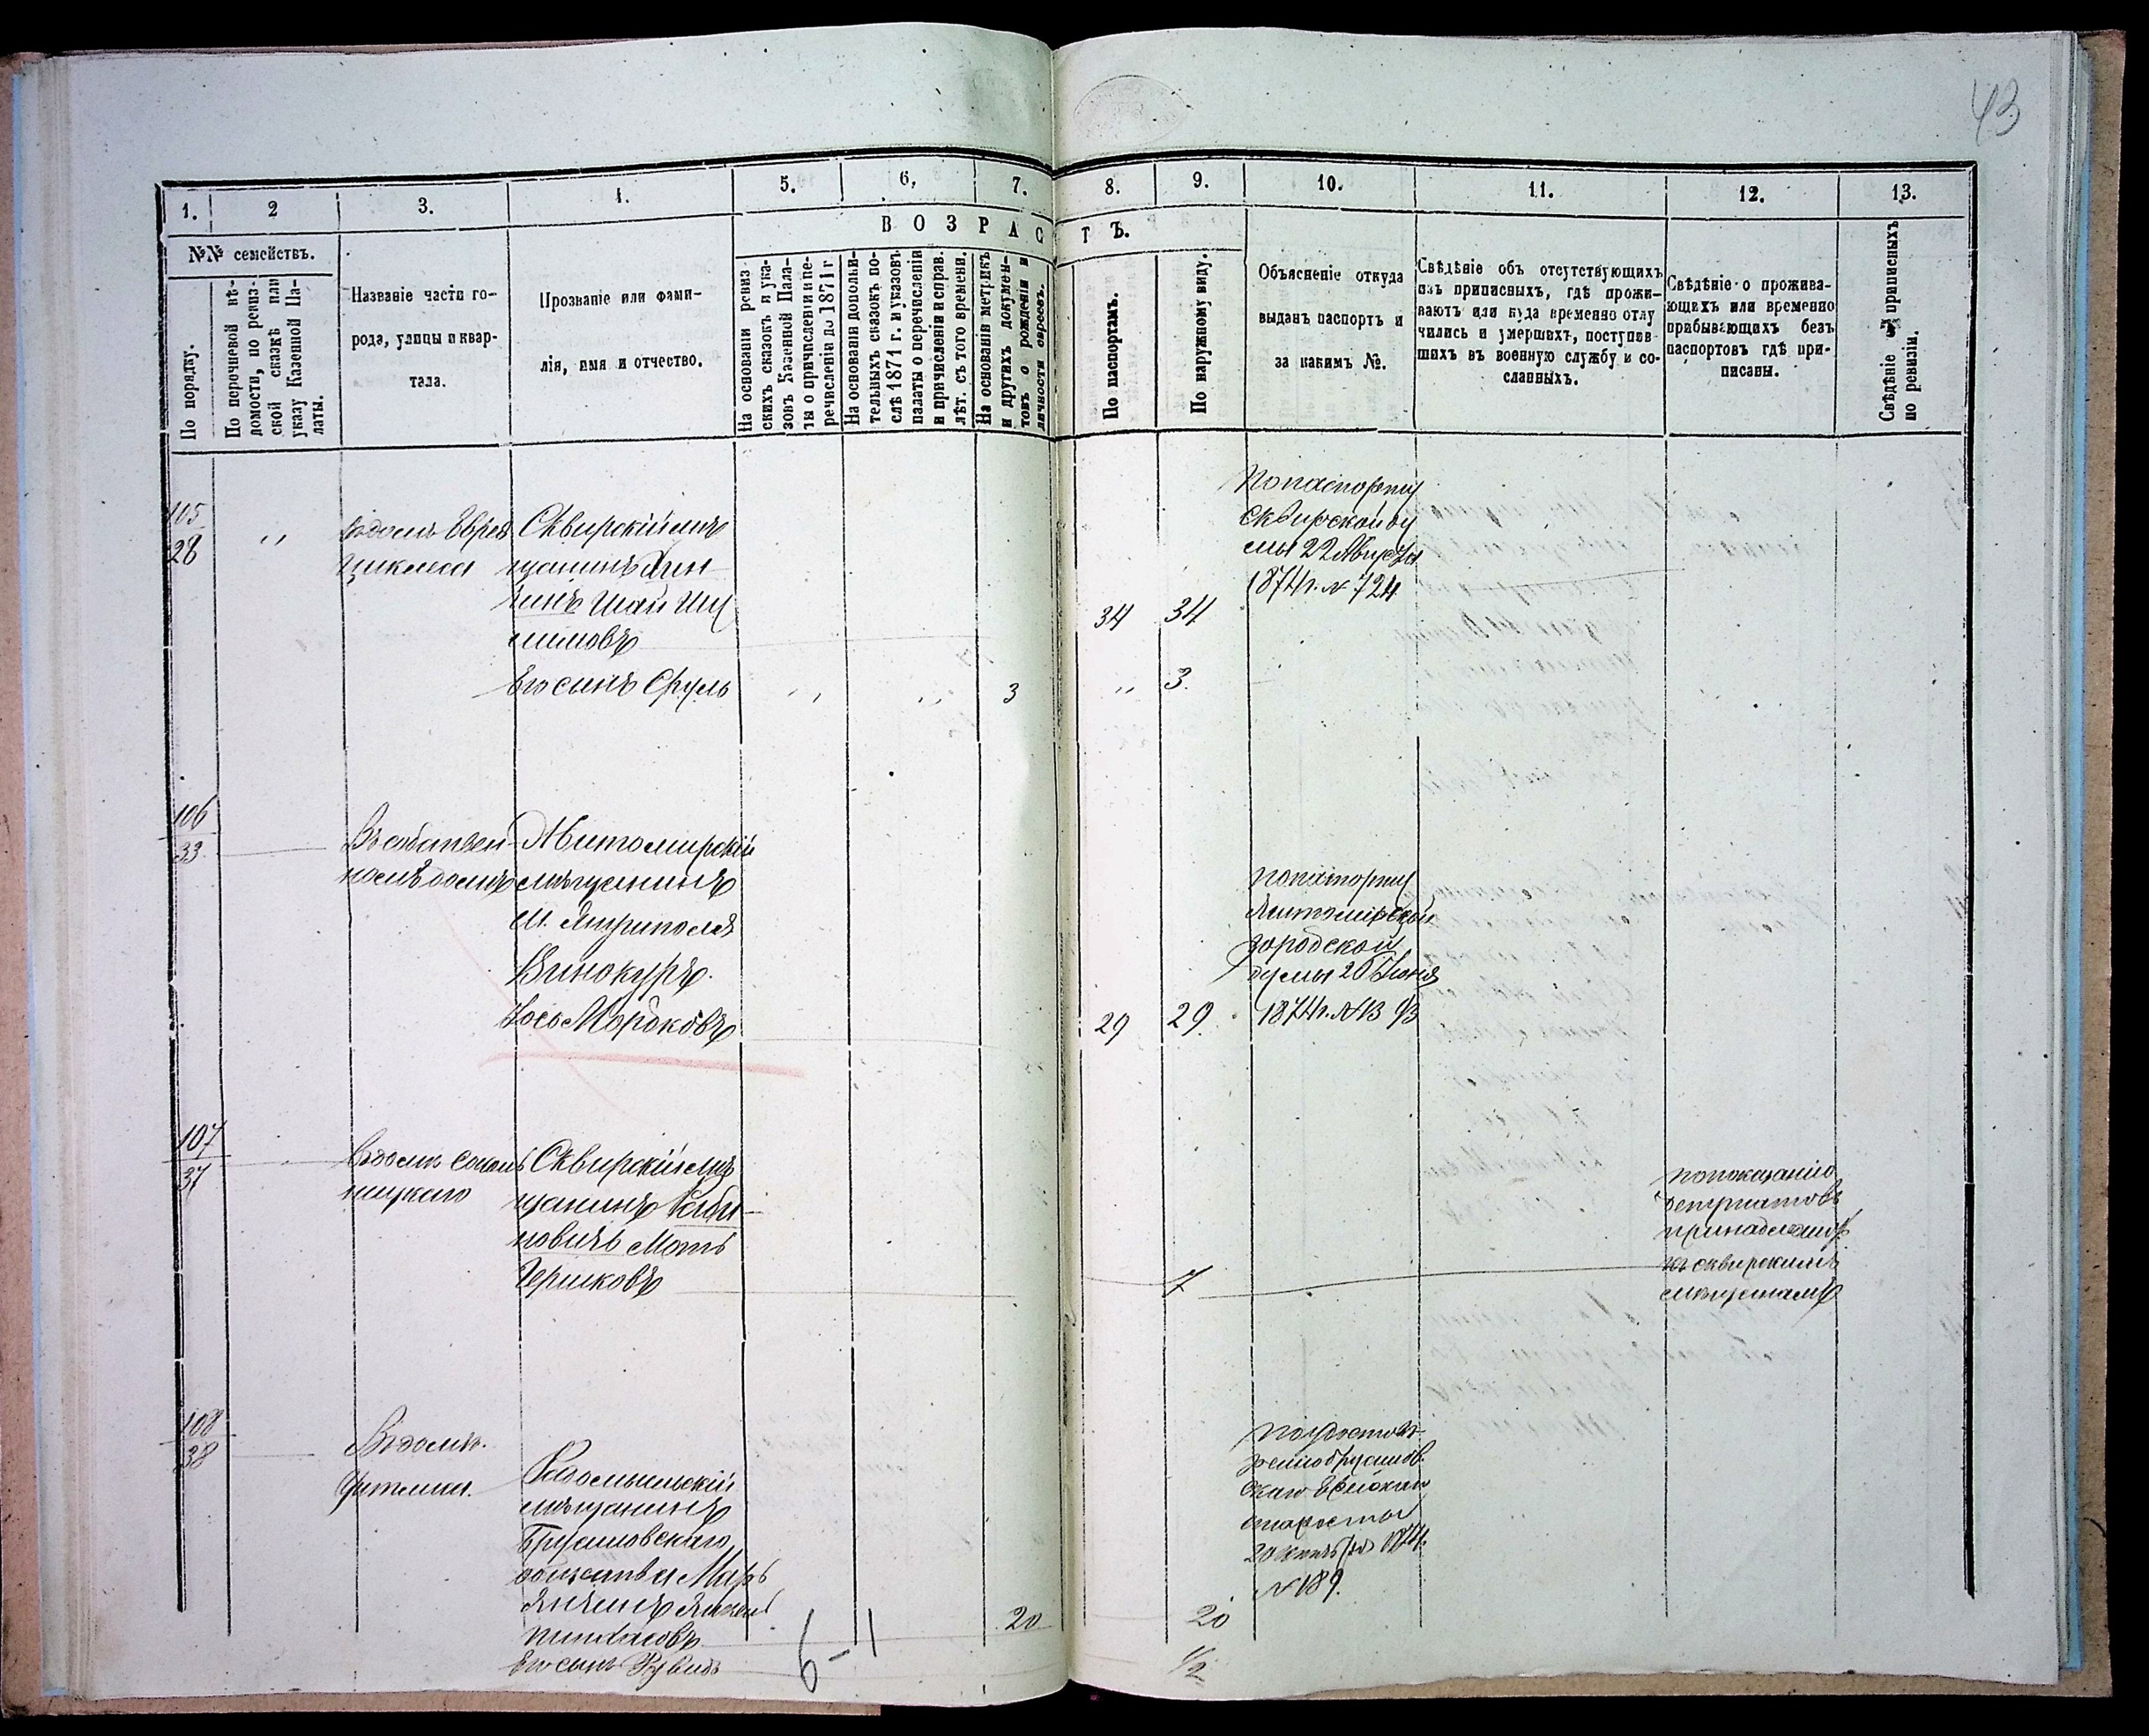 43
1. 2 3. 4. 5. 6, 7. 8. 9. 10. 11. 12. 13.
В О З Р А С Т Ъ.
№№ семействъ.
По порядку.
По перечневой вѣ-
домости, по ревиз-
ской сказкѣ или
указу Казенной Па-
латы.
Названіе части го-
рода, улицы и квар-
тала.
Прозваніе или фами-
лія, имя и отчество.
На основаніи ревиз
скихъ сказокъ и ука-
зовъ Казенной Пала-
ты о причисленіи и пе-
речисленіи до 1871 г
На основаніи дополни-
тельныхъ сказокъ по-
слѣ 1871 г. и указовъ
палаты о перечисленіи
и причисленіи и справ.
лѣт. съ того времени.
На основаніи метрикъ
и другихъ докумен-
товъ о рожденіи и
личности евреевъ.
По паспортамъ.
По наружному виду.
Объясненіе откуда
выданъ паспортъ и
за какимъ №.
Свѣдѣніе объ отсутствующихъ
изъ приписныхъ, гдѣ прожи-
ваютъ или куда временно отлу
чились и умершихъ, поступив-
шихъ въ военную службу и со-
сланныхъ.
Свѣдѣніе о прожива-
ющихъ или временно
прибывающихъ безъ
паспортовъ гдѣ при-
писаны.
Свѣдѣніе приписныхъ
по ревизіи.
105
28
Въ домѣ Еврея
Сквирскій мѣ
щанинъ
Шай Шу
лимовъ
34 34
По паспорту
Сквирской ду
мы 22 Августа
1874 г. № 724
Его сынъ Сруль
3 3.
106
33
Въ собствен-
номъ домѣ
Житомирскій
мѣщанинъ
м.
Винокуръ
Іось Мордковъ
29 29.
по паспорту
Житомірской
городской
думы 20 Іюня
1874 г. №
107
37
Въ домѣ
Сквирскій мѣ
щанинъ Раби-
новичъ Мотъ
Гершковъ
7
по показанію
депутатовъ
принадлежитъ
къ сквирскимъ
мѣщанамъ
108
38
Въ домѣ
Радомысльскій
мѣщанинъ
Брусиловскаго
общества
Пинхасовъ
20 20
по удостовѣ-
ренію Брусилов.
скаго Еврейскаго
старосты
20 1874.
№ 189.
Его сынъ
1/2
6-1